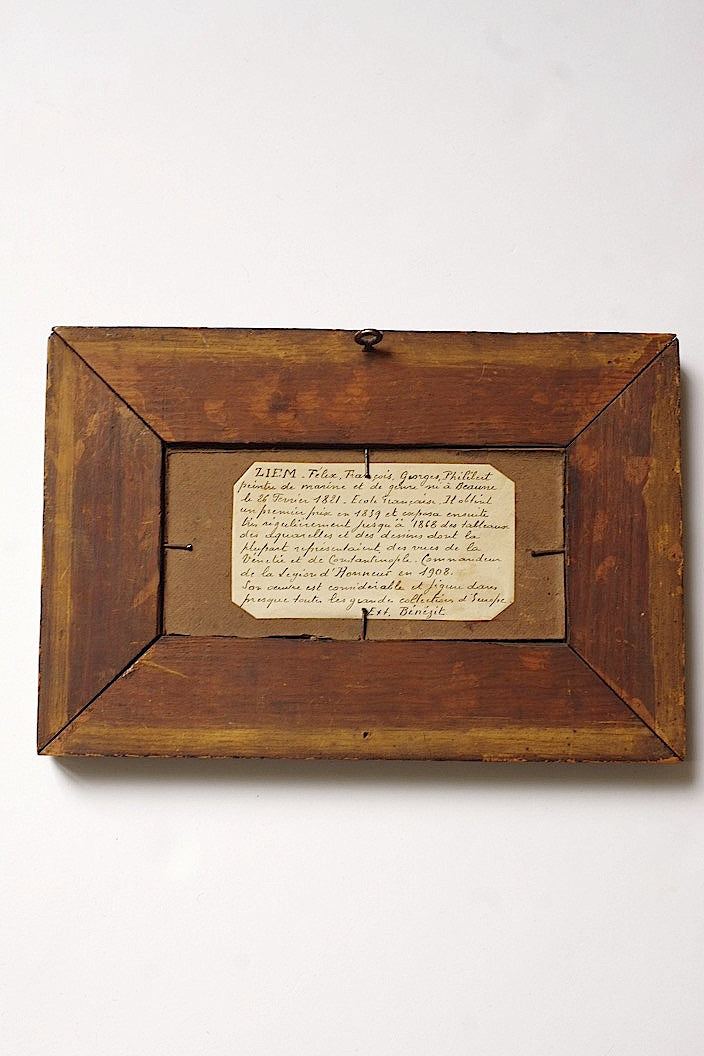 ZIEM - Félix, François, Georges, Philibert
peintre de marine et de genre né à Beaune
le 26 Février 1821. Ecole Française. Il obtint
un premier prix en 1839 et exposa ensuite
très régulièrement jusqu'à 1868 des tableaux
des aquarelles et des dessins dont la
plupart représentaient des vues de la
Vénétie et de Constantinople. Commandeur
de la Légion d'Honneur en 1908.
Son œuvre est considérable et figure dans
presque toutes les grandes collections d'Europe
Ext. Bénézit